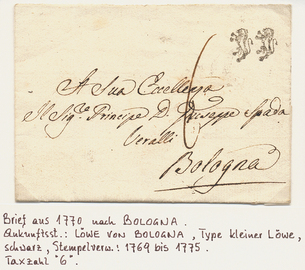 A Sua Eccellenza
Il Sig.re Principe D. Giuseppe Spada
Veralli
6
Bologna
Brief aus 1770 nach BOLOGNA.
Ankunftsst.: LÖWE VON BOLOGNA, Type kleiner Löwe,
schwarz, Stempelverw.: 1769 bis 1775.
Taxzahl "6".